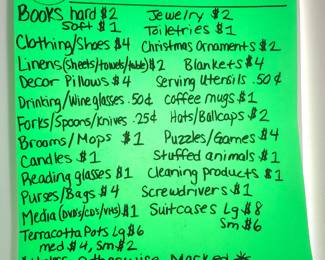 Books hard $2 Jewelry $2
Soft $1 Toiletries $1
Clothing/Shoes $4 Christmas Ornaments $2
Linens (sheets/towels/table) $2 Blankets $4
Decor Pillows $4 Serving Utensils .50¢
Drinking/Wine glasses .50¢ coffee mugs $1
Forks/Spoons/knives .25¢ Hats/Ballcaps $2
Brooms/Mops $1 Puzzles/Games $4
Candles $1 Stuffed animals $1
Reading glasses $1 Cleaning products $1
Purses/Bags $4 Screwdrivers $1
Media (DVD's/CD's/VHS) $1 Suitcases Lg $8
Terracotta Pots Lg $6 Sm $6
med $4, Sm $2
Otherwise Marked *